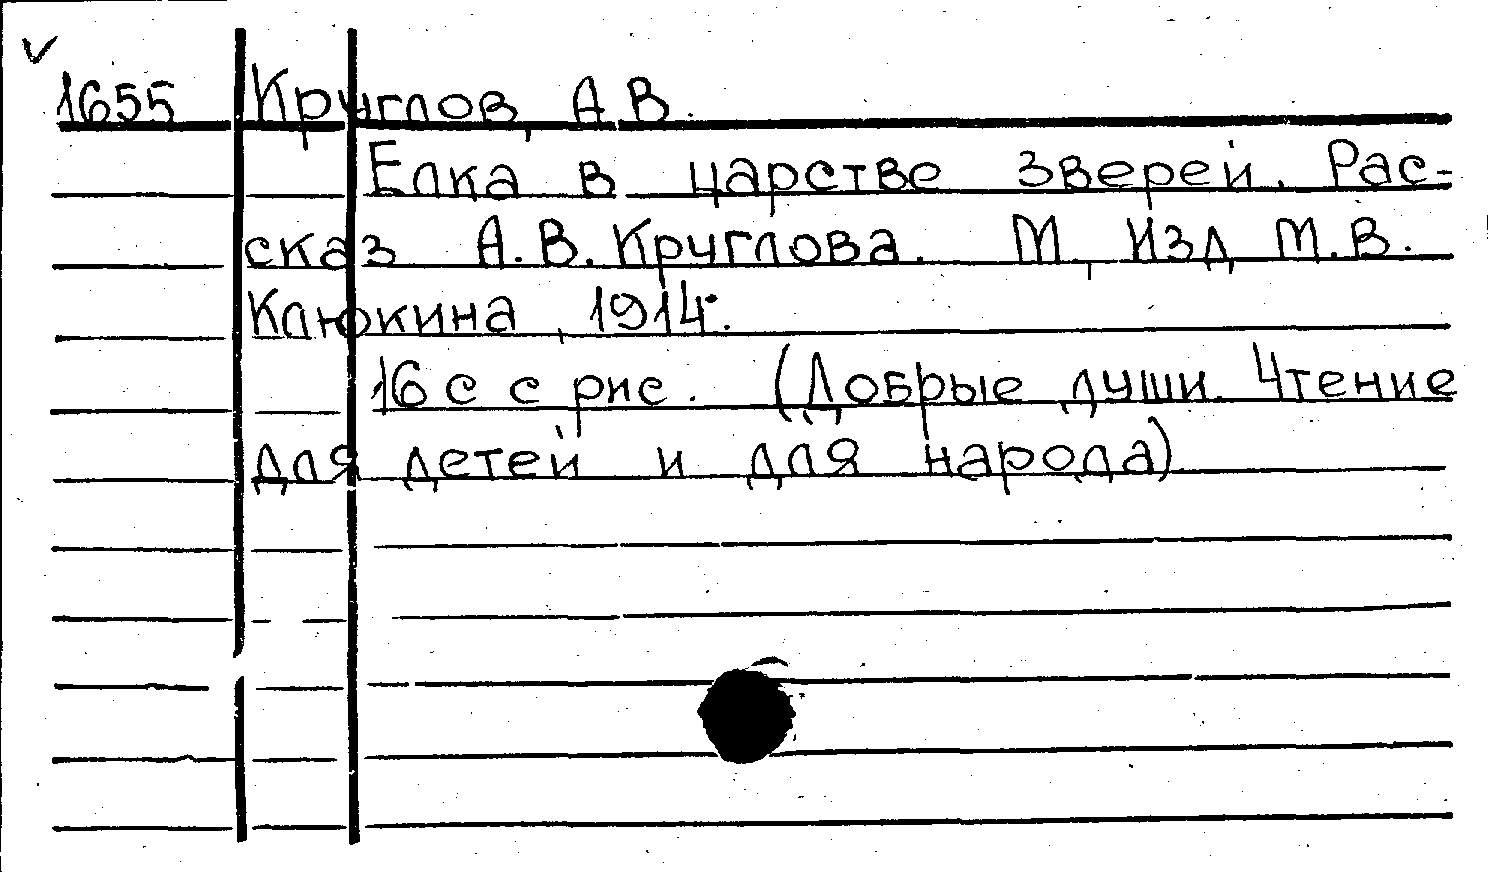 1655 Круглов, А.В.
Елка в царстве зверей. Рас-
сказ А.В. Круглова. М, Изд, М.В.
Клюкина, 1914.
16 с с рис. (Добрые души. Чтение
для детей и для народа)